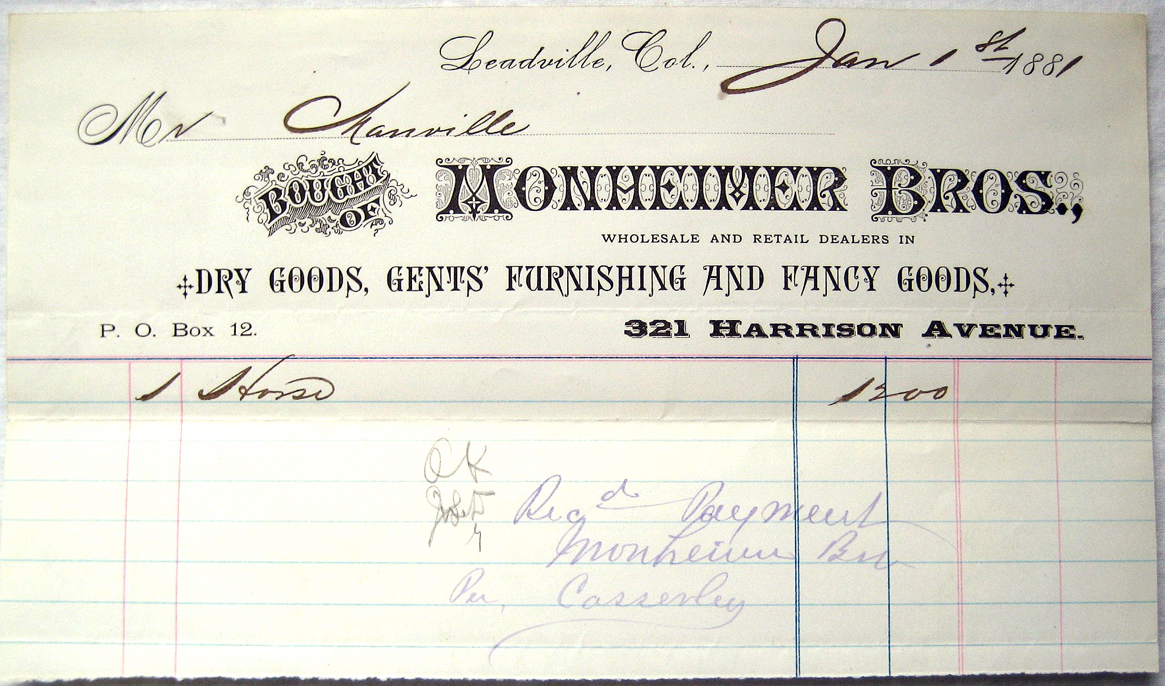 Leadville, Col., Jan 1st 1881
Mr Manville
BOUGHT OF MONHEIMER BROS.,
WHOLESALE AND RETAIL DEALERS IN
DRY GOODS, GENTS' FURNISHING AND FANCY GOODS,
P. O. Box 12. 321 HARRISON AVENUE.
1 Horse 1200
OK
Recd Payment
Monheimer Bro
Per, Casserley